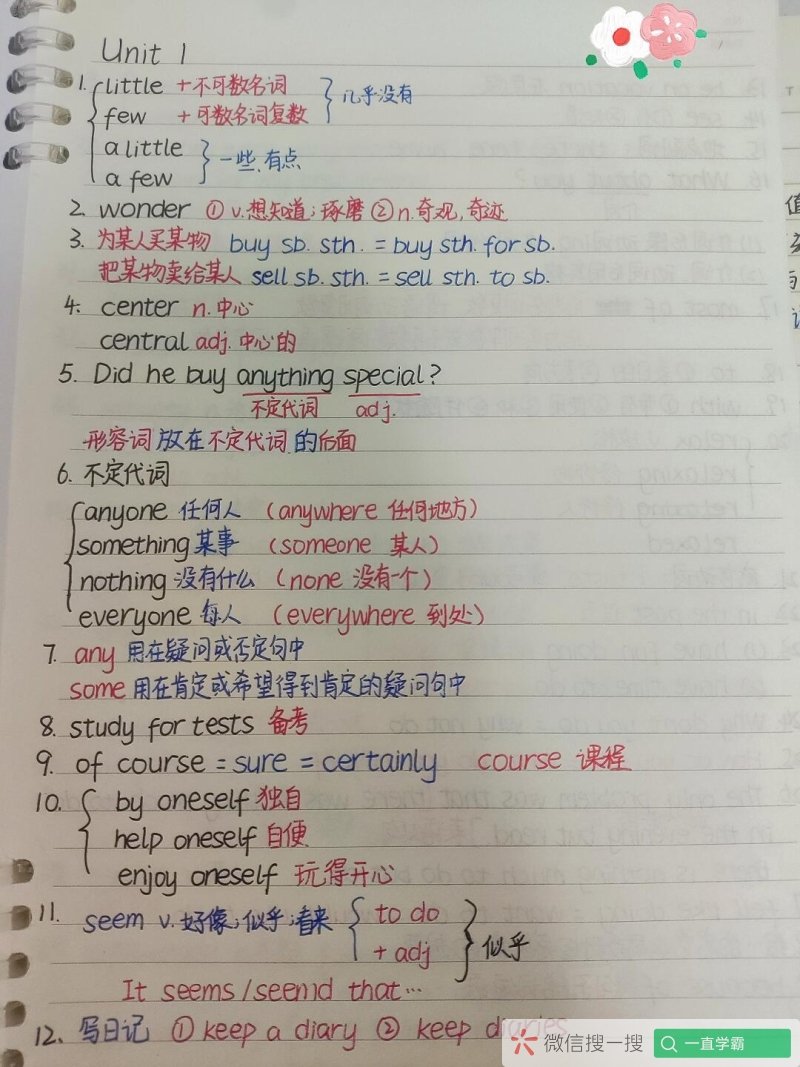 Unit 1
1. little + 不可数名词
few + 可数名词复数 几乎没有
a little
a few 一些,有点
2. wonder ① v.想知道;琢磨 ② n.奇观,奇迹
3. 为某人买某物 buy sb. sth. = buy sth. for sb.
把某物卖给某人 sell sb. sth. = sell sth. to sb.
4. center n.中心
central adj.中心的
5. Did he buy anything special?
不定代词 adj.
形容词放在不定代词的后面
6. 不定代词
anyone 任何人 (anywhere 任何地方)
something 某事 (someone 某人)
nothing 没有什么 (none 没有一个)
everyone 每人 (everywhere 到处)
7. any 用在疑问或否定句中
some 用在肯定或希望得到肯定的疑问句中
8. study for tests 备考
9. of course = sure = certainly course 课程
10. by oneself 独自
help oneself 自便
enjoy oneself 玩得开心
11. seem v.好像;似乎;看来 to do
+ adj 似乎
It seems/seemd that…
12. 写日记 ① keep a diary ② keep diaries
微信搜一搜 一直学霸